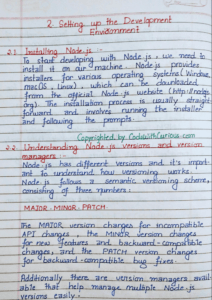 2. Setting up the Development
Environment
2.1 Installing Node.js :-
To start developing with Node.js, we need to
install it on our machine. Node.js provides
installers for various operating systems (Windows,
macOS, Linux), which can be downloaded
from the official Node.js website (http://nodejs.
org). The installation process is usually straight
forward and involves running the installer
and following the prompts.
Copyrighted by CodeWithCurious.com
2.2 Understanding Node.js versions and version
managers :-
Node.js has different versions and it's import-
ant to understand how versioning works.
Node.js follows a semantic versioning scheme,
consisting of three numbers:
MAJOR.MINOR.PATCH.
The MAJOR version changes for incompatible
API changes, the MINOR version changes
for new features and backward-compatible
changes, and the PATCH version changes
for backward-compatible bug fixes.
Additionally there are version managers avail
able that help manage multiple Node.js
versions easily.